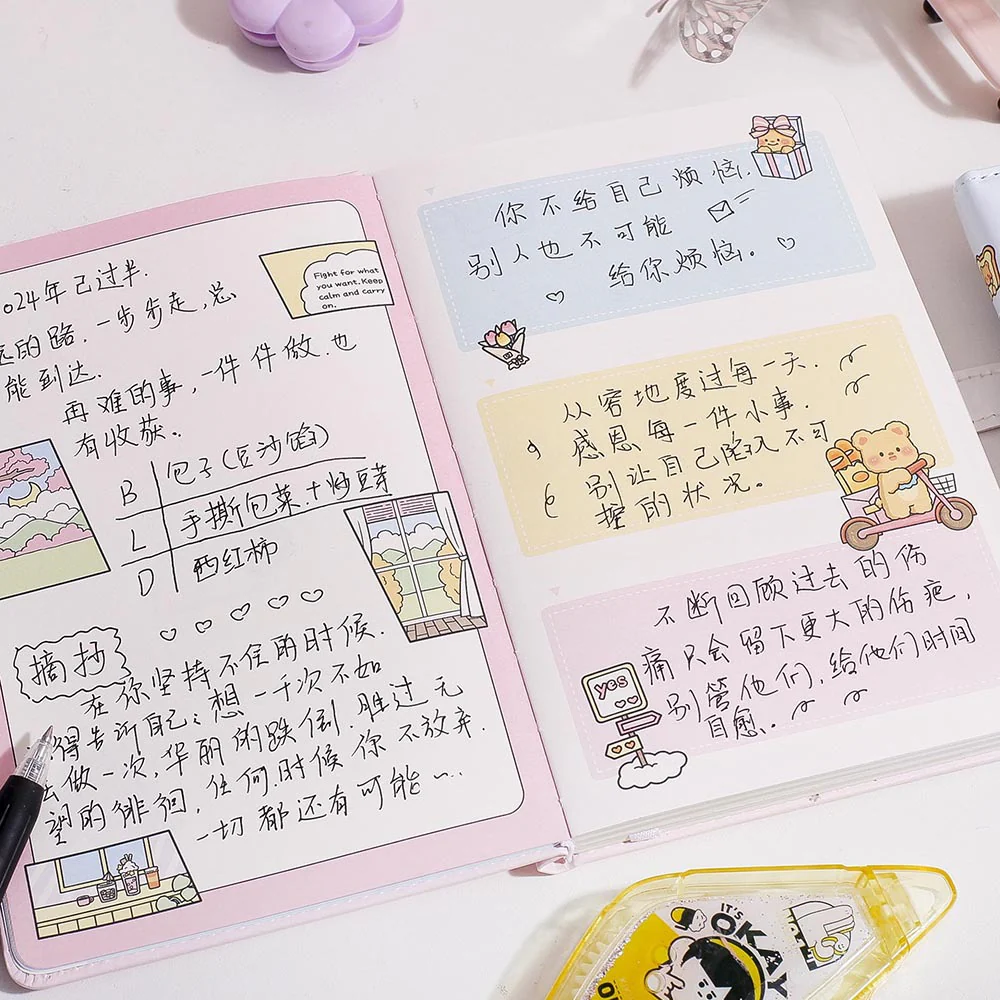 024年已过半.
远的路,一步步走,总
能到达.
再难的事,一件件做.也
有收获。
Fight for what
you want. Keep
calm and carry
on.
B 包子(豆沙馅)
L 手撕包菜.+炒豆芽
D 西红柿
摘抄
在你坚持不住的时候.
得告诉自己:想一千次不如
去做一次,华丽的跌倒.胜过无
望的徘徊,任何时候你不放弃.
一切都还有可能~...
你不给自己烦恼.
别人也不可能
给你烦恼。
从容地度过每一天.
感恩每一件小事.
别让自己陷入不可
控的状况。
不断回顾过去的伤
痛只会留下更大的伤疤,
别管他们,给他们时间
自愈。
yes
IT'S
OKAY